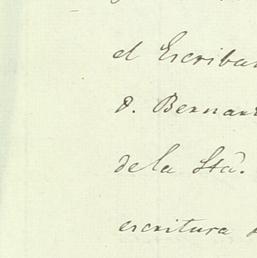 el Escriba
D. Berna
de la Sta.
escritura